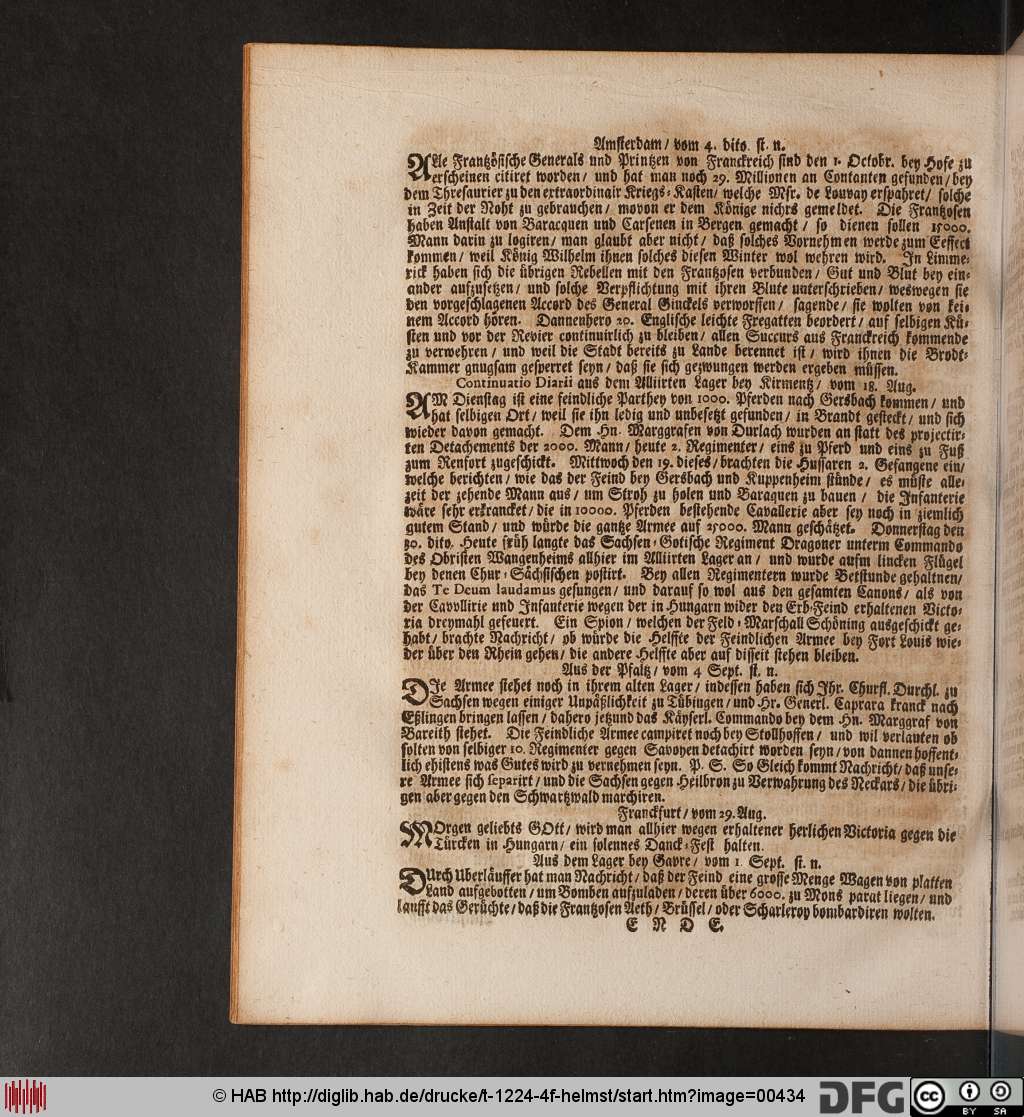 Amsterdam / vom 4. dito. st. n.
ALle Frantzösische Generals und Printzen von Franckreich sind den 1. Octobr. bey Hofe zu
erscheinen citiret worden / und hat man noch 29. Millionen an Contanten gefunden / bey
dem Thresaurier zu den extraordinair Kriegs-Kasten / welche Msr. de Louvay erspahret / solche
in Zeit der Noht zu gebrauchen / movon er dem Könige nichrs gemeldet. Die Frantzosen
haben Anstalt von Baracquen und Carsenen in Bergen gemacht / so dienen sollen 15000.
Mann darin zu logiren / man glaubt aber nicht / daß solches Vornehmen werde zum Eeffect
kommen / weil König Wilhelm ihnen solches diesen Winter wol wehren wird. In Limme-
rick haben sich die übrigen Rebellen mit den Frantzosen verbunden / Gut und Blut bey ein-
ander aufzusetzen / und solche Verpflichtung mit ihren Blute unterschrieben / weswegen sie
den vorgeschlagenen Accord des General Ginckels verworffen / sagende / sie wolten von kei-
nem Accord hören. Dannenhero 20. Englische leichte Fregatten beordert / auf selbigen Kü-
sten und vor der Revier continuirlich zu bleiben / allen Succurs aus Franckreich kommende
zu verwehren / und weil die Stadt bereits zu Lande berennet ist / wird ihnen die Brodt-
Kammer gnugsam gesperret seyn / daß sie sich gezwungen werden ergeben müssen.
Continuatio Diarii aus dem Alliirten Lager bey Kirmentz / vom 18. Aug.
AM Dienstag ist eine feindliche Parthey von 1000. Pferden nach Gersbach kommen / und
hat selbigen Ort / weil sie ihn ledig und unbesetzt gefunden / in Brandt gesteckt / und sich
wieder davon gemacht. Dem Hn. Marggrafen von Durlach wurden an statt des projectir-
ten Detachements der 2000. Mann / heute 2. Regimenter / eins zu Pferd und eins zu Fuß
zum Renfort zugeschickt. Mittwoch den 19. dieses / brachten die Hussaren 2. Gefangene ein /
welche berichten / wie das der Feind bey Gersbach und Kuppenheim stünde / es müste alle-
zeit der zehende Mann aus / um Stroh zu holen und Baraquen zu bauen / die Infanterie
wäre sehr erkrancket / die in 10000. Pferden bestehende Cavallerie aber sey noch in ziemlich
gutem Stand / und würde die gantze Armee auf 25000. Mann geschätzet. Donnerstag den
20. dito. Heute früh langte das Sachsen-Gotische Regiment Dragoner unterm Commando
des Obristen Wangenheims allhier im Alliirten Lager an / und wurde aufm lincken Flügel
bey denen Chur-Sächsischen postirt. Bey allen Regimentern wurde Betstunde gehaltnen /
das Te Deum laudamus gesungen / und darauf so wol aus den gesamten Canons / als von
der Cavollirie und Infanterie wegen der in Hungarn wider den Erb-Feind erhaltenen Victo-
ria dreymahl gefeuert. Ein Spion / welchen der Feld-Marschall Schöning ausgeschickt ge-
habt / brachte Nachricht / ob würde die Helffte der Feindlichen Armee bey Fort Louis wie-
der über den Rhein gehen / die andere Helffte aber auf disseit stehen bleiben.
Aus der Pfaltz / vom 4 Sept. st. n.
DIe Armee stehet noch in ihrem alten Lager / indessen haben sich Ihr. Churfl. Durchl. zu
Sachsen wegen einiger Unpäßlichkeit zu Tübingen / und Hr. Generl. Caprara kranck nach
Eßlingen bringen lassen / dahero jetzund das Käyserl. Commando bey dem Hn. Marggraf von
Bareith stehet. Die Feindliche Armee campiret noch bey Stollhoffen / und wil verlauten ob
solten von selbiger 10. Regimenter gegen Savoyen detachirt worden seyn / von dannen hoffent-
lich ehistens was Gutes wird zu vernehmen seyn. P. S. So Gleich kommt Nachricht / daß unse-
re Armee sich separirt / und die Sachsen gegen Heilbron zu Verwahrung des Neckars / die übri-
gen aber gegen den Schwartzwald marchiren.
Franckfurt / vom 29. Aug.
MOrgen geliebts GOtt / wird man allhier wegen erhaltener herlichen Victoria gegen die
Türcken in Hungarn / ein solennes Danck-Fest halten.
Aus dem Lager bey Gavre / vom 1 Sept. st. n.
DUrch Uberläuffer hat man Nachricht / daß der Feind eine grosse Menge Wagen von platten
Land aufgebotten / um Bomben aufzuladen / deren über 6000. zu Mons parat liegen / und
laufft das Gerüchte / daß die Frantzosen Aeth / Brüssel / oder Scharleroy bombardiren wolten.
E N D E.
© HAB http://diglib.hab.de/drucke/t-1224-4f-helmst/start.htm?image=00434
DFG
cc BY SA